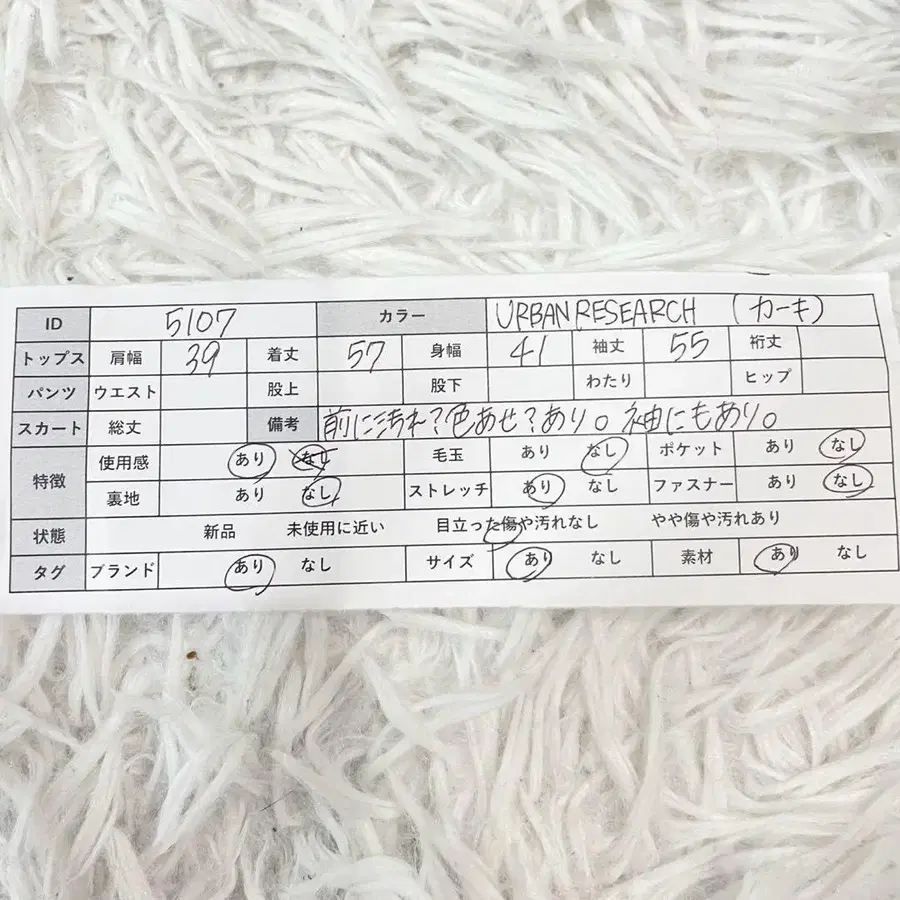 ID 5107 カラー URBAN RESEARCH (カーキ)
トップス 肩幅 39 着丈 57 身幅 41 袖丈 55 裄丈
パンツ ウエスト 股上 股下 わたり ヒップ
スカート 総丈 備考 前に汚れ?色あせ?あり。袖にもあり。
特徴 使用感 あり なし 毛玉 あり なし ポケット あり なし
裏地 あり なし ストレッチ あり なし ファスナー あり なし
状態 新品 未使用に近い 目立った傷や汚れなし やや傷や汚れあり
タグ ブランド あり なし サイズ あり なし 素材 あり なし